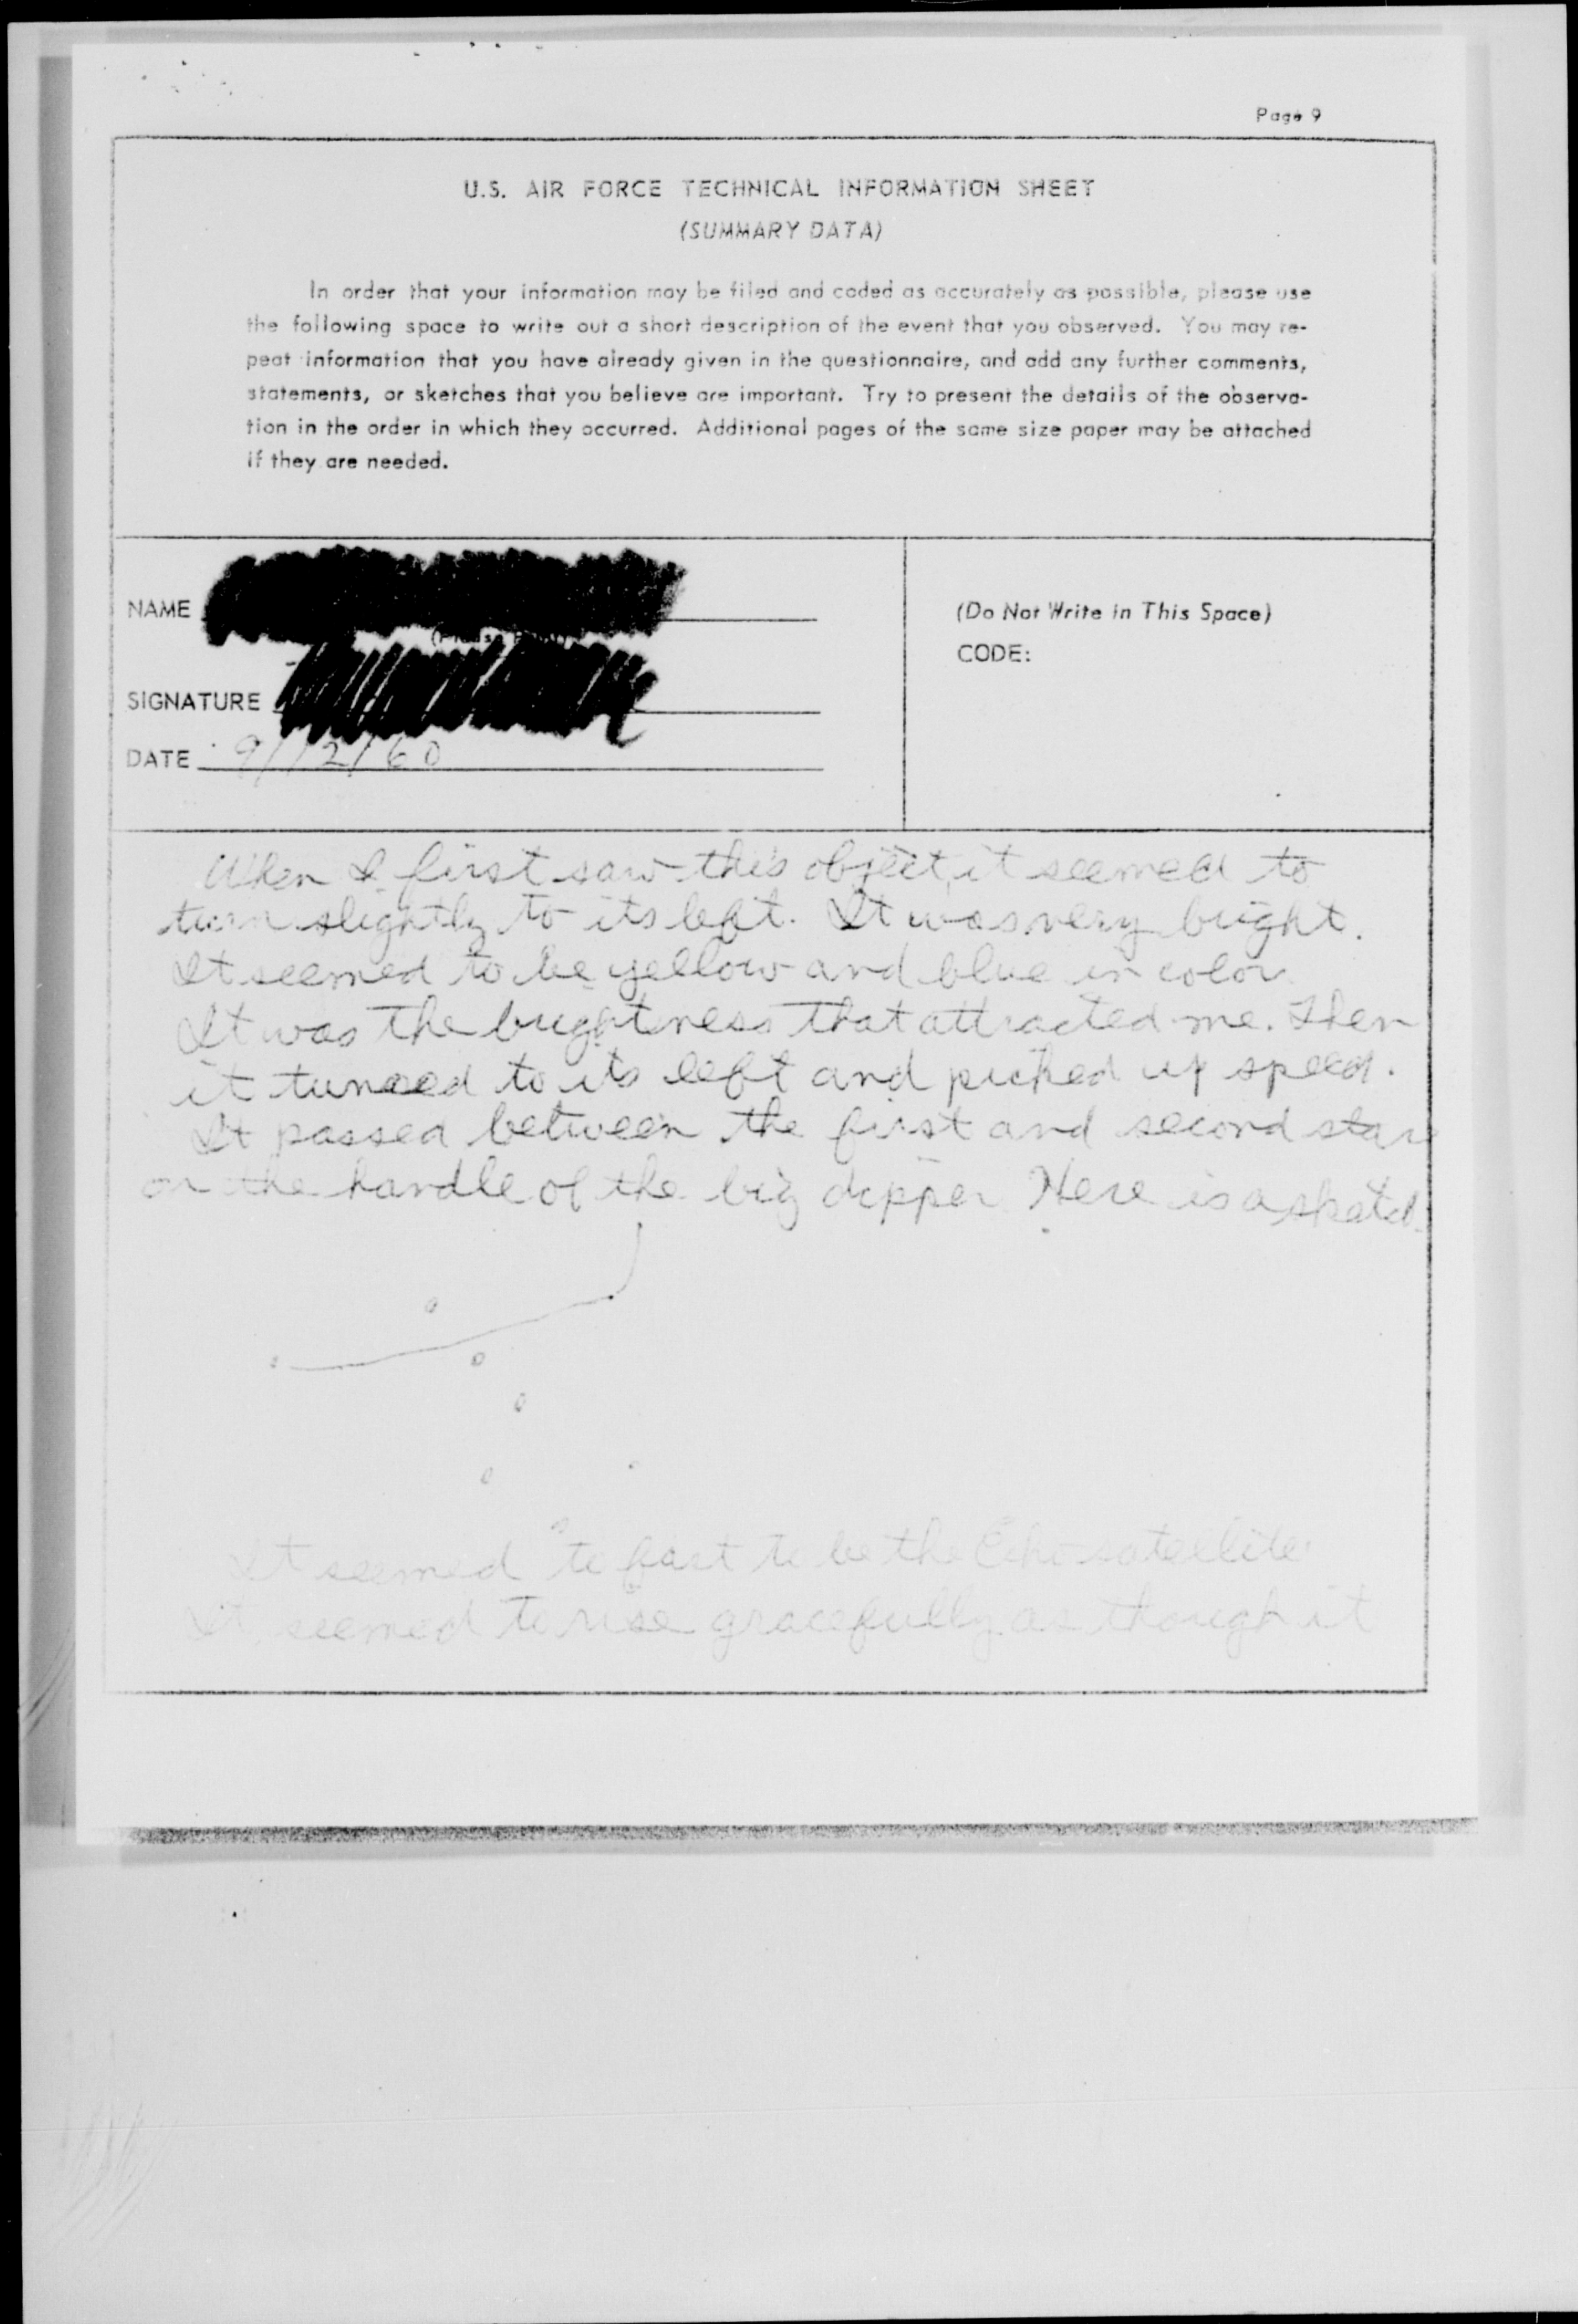 Page 9
U.S. AIR FORCE TECHNICAL INFORMATION SHEET
(SUMMARY DATA)
In order that your information may be filed and coded as accurately as possible, please use
the following space to write out a short description of the event that you observed. You may re-
peat information that you have already given in the questionnaire, and add any further comments,
statements, or sketches that you believe are important. Try to present the details of the observa-
tion in the order in which they occurred. Additional pages of the same size paper may be attached
if they are needed.
NAME
(Do Not Write in This Space)
CODE:
SIGNATURE
DATE 9/12/60
When I first saw this object, it seemed to
turn slightly to its left. It was very bright.
It seemed to be yellow and blue in color.
It was the brightness that attracted me. Then
it turned to its left and picked up speed.
It passed between the first and second stars
on the handle of the big dipper. Here is a sketch.
It seemed to fast to be the Echo satellite.
It seemed to rise gracefully as though it